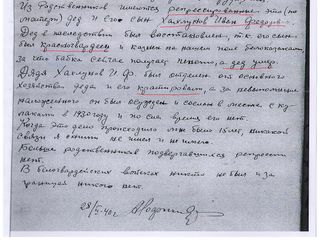 Из родственников имеются репрессированные это (по
матери) дед и его сын Хахлунов Иван Федоров.
Дед в последствии был восстановлен, т.к. его сын
был красногвардеец и казнен на нашем поле белоказаками,
за что бабка сейчас получает пенсию, а дед умер.
Дядя Хахлунов И.Ф. был отделен от основного
хозяйства деда и его кратировали, а за невыполнение
наложенного он был осужден и сослан в место с ку-
лаками в 1930 году и по сие время его нет.
Когда это дело происходило мне было 15 лет, никакой
связи я с ним не имел и не имею.
Больше родственников подвергавшихся репрессии
нет.
В белогвардейских войсках никто не был и за
границей никого нет.
28/ 40г.